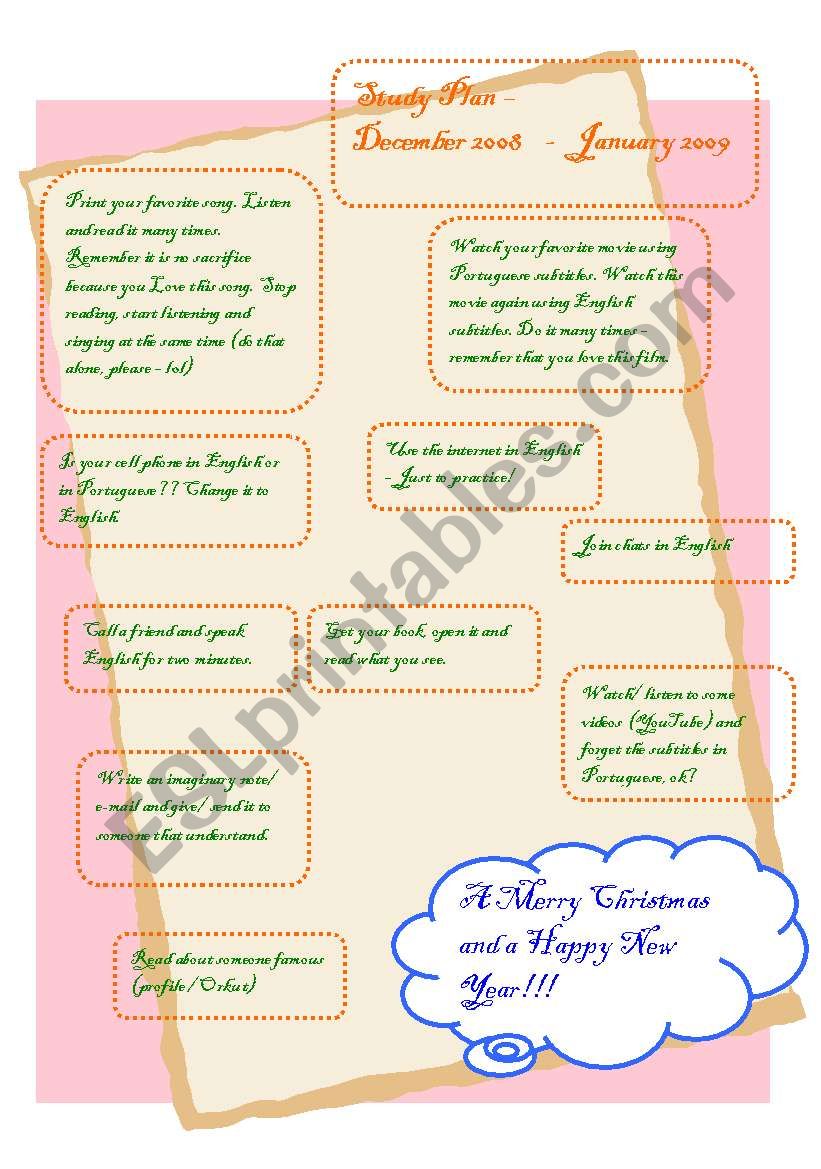 Study Plan –
December 2008 - January 2009
Print your favorite song. Listen
and read it many times.
Remember it is no sacrifice
because you Love this song. Stop
reading, start listening and
singing at the same time (do that
alone, please – lol)
Watch your favorite movie using
Portuguese subtitles. Watch this
movie again using English
subtitles. Do it many times –
remember that you love this film.
Is your cell phone in English or
in Portuguese?? Change it to
English.
Use the internet in English
– Just to practice!
Join chats in English
Call a friend and speak
English for two minutes.
Get your book, open it and
read what you see.
Watch/ listen to some
videos (YouTube) and
forget the subtitles in
Portuguese, ok?
Write an imaginary note/
e-mail and give/ send it to
someone that understand.
Read about someone famous
(profile/Orkut)
A Merry Christmas
and a Happy New
Year!!!
ESLprintables.com